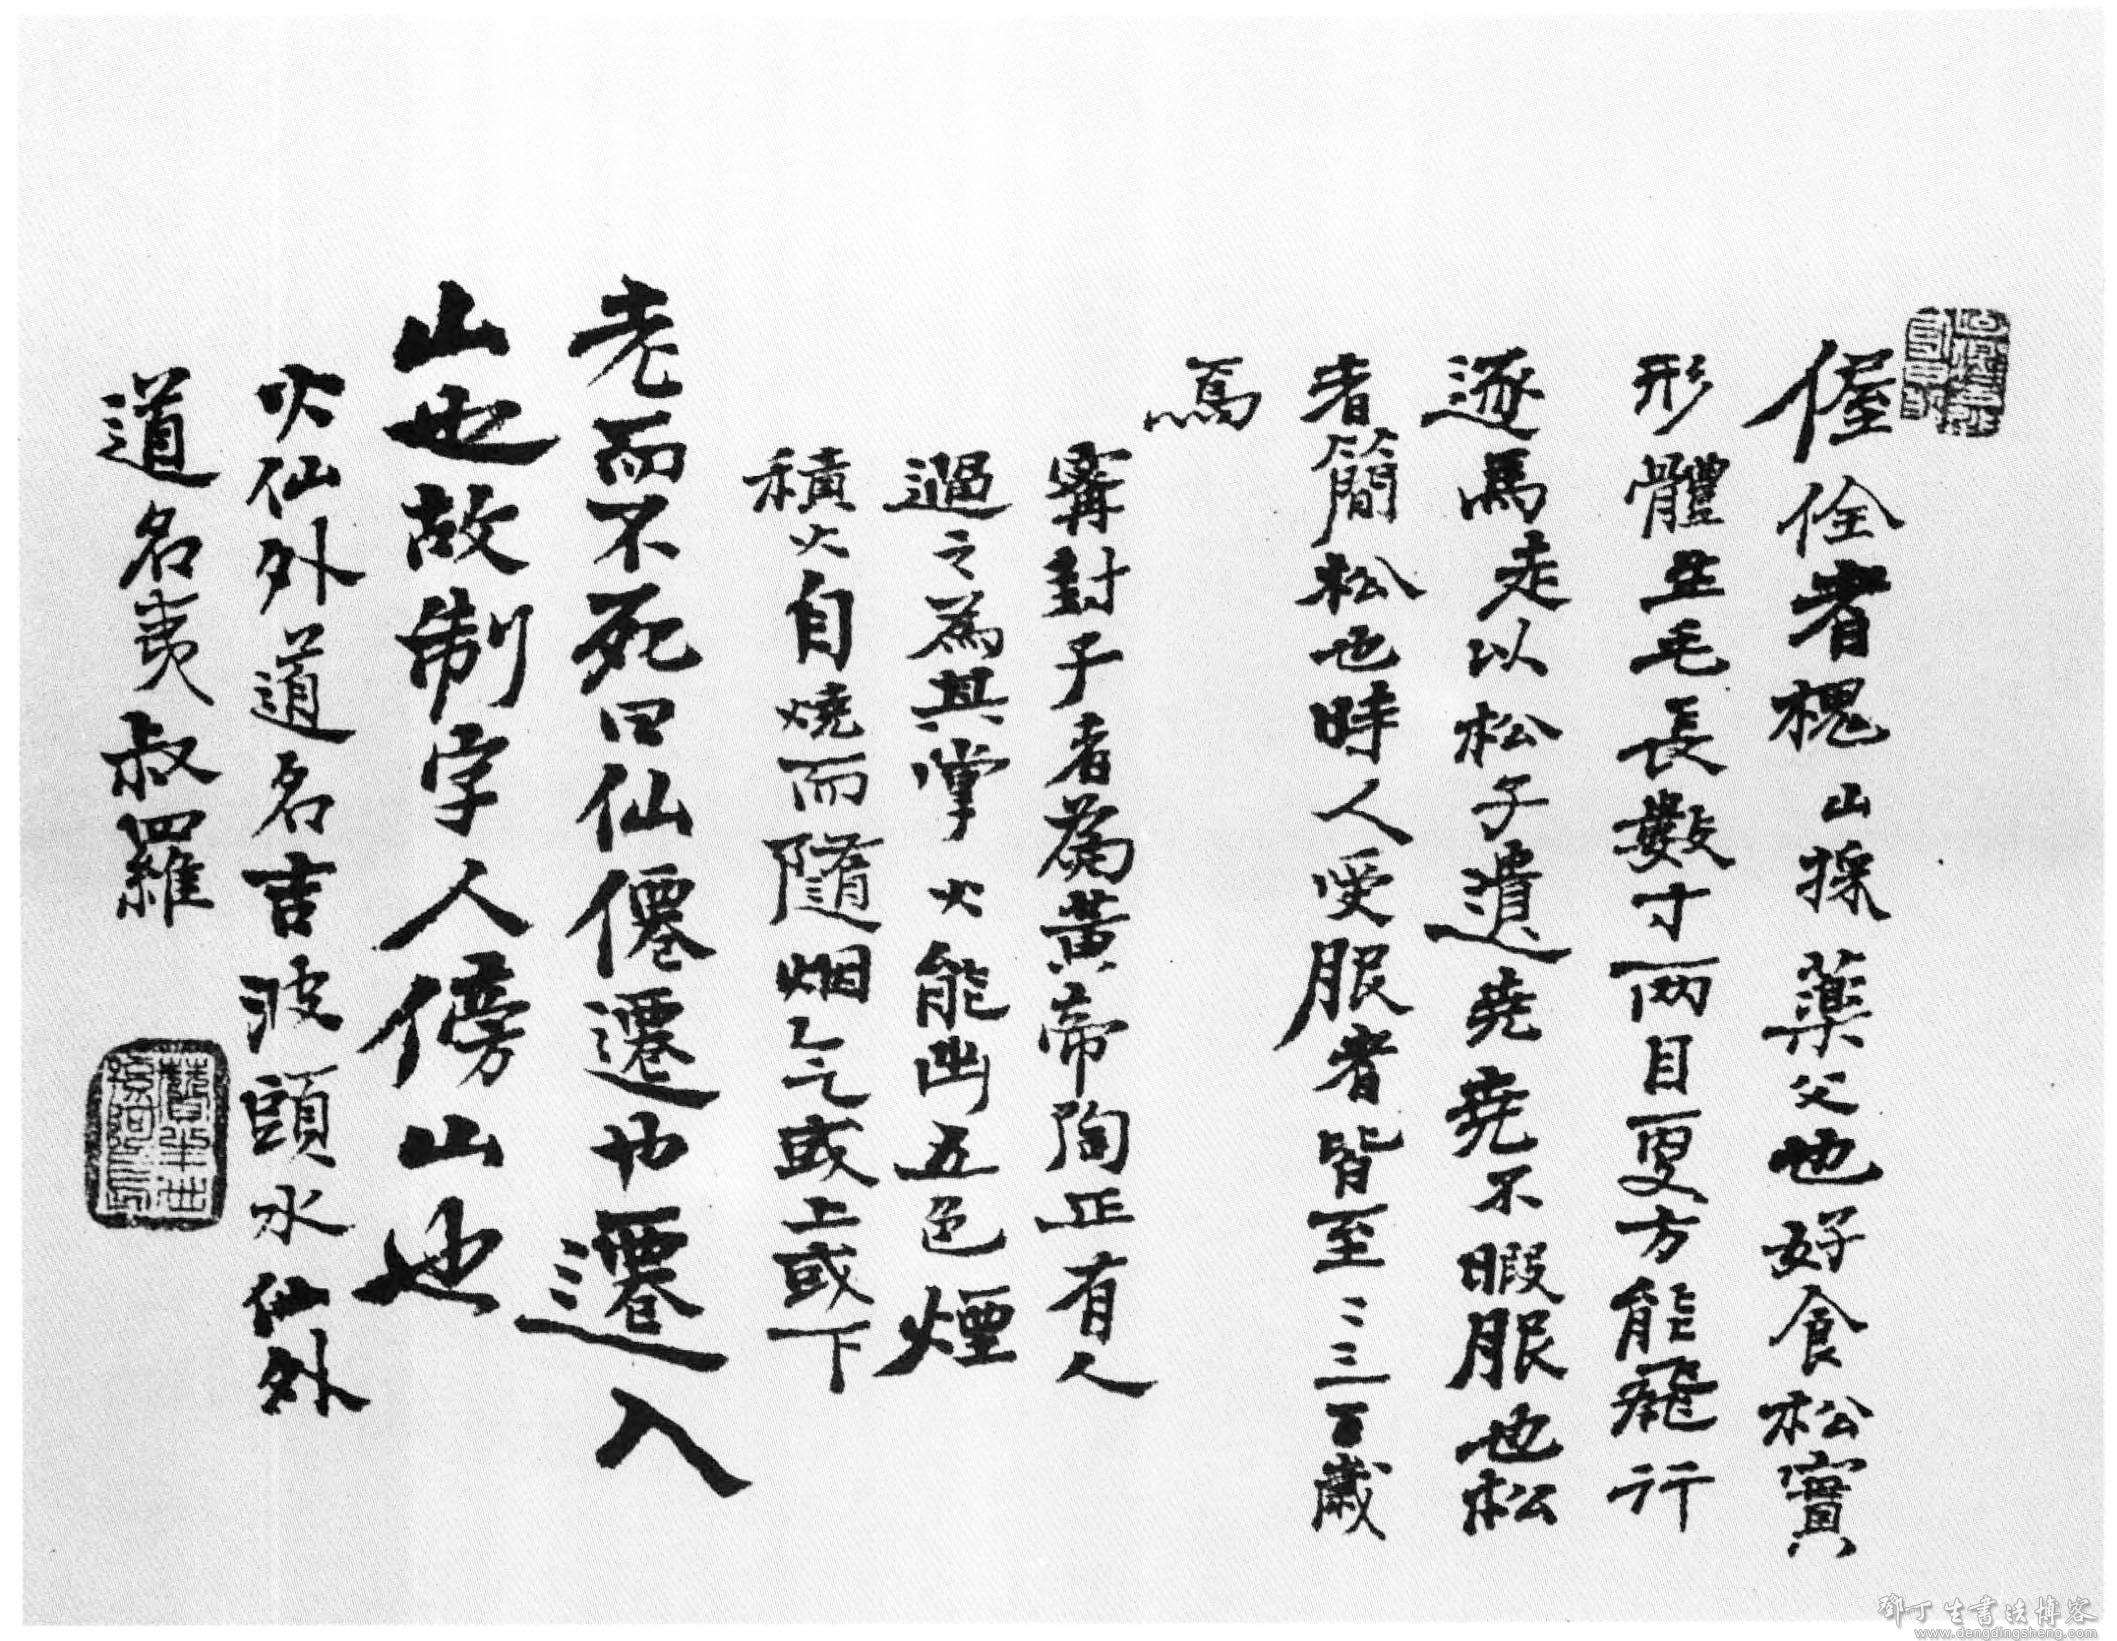 偓佺者槐山採藥父也好食松實
形體生毛長數寸兩目更方能飛行
逐馬走以松子遺堯堯不暇服也松
者簡松也時人受服者皆至二三百歲
焉
甯封子者為黃帝陶正有人
過之為其掌火能出五色煙
積火自燒而隨烟气或上或下
老而不死曰仙僊遷也遷入
山也故制字人傍山也
火仙外道名吉波頭水仙外
道名夷叔羅
鄧丁生書法博客
www.dengdingsheng.com